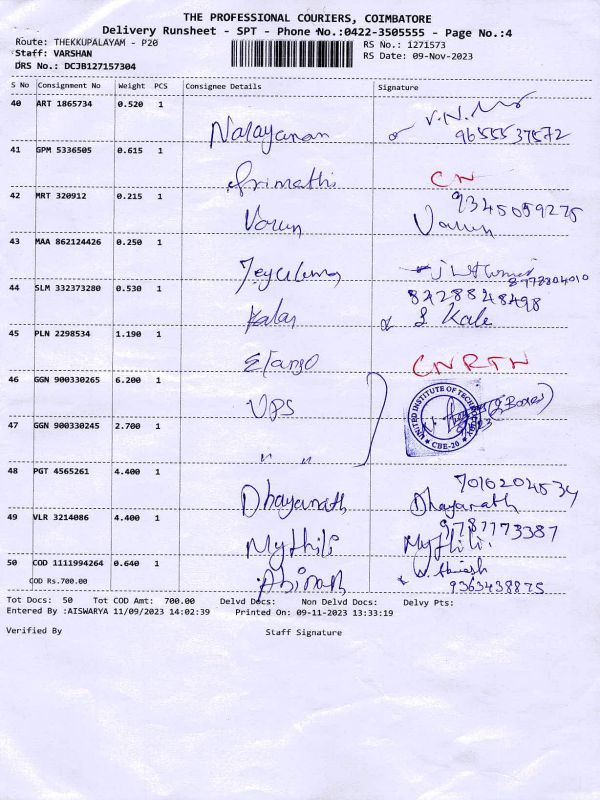 THE PROFESSIONAL COURIERS, COIMBATORE
Delivery Runsheet - SPT - Phone No.:0422-3505555 - Page No.:4
Route: THEKKUPALAYAM - P20
RS No.: 1271573
Staff: VARSHAN
RS Date: 09-Nov-2023
DRS No.: DCJB127157304
S No Consignment No Weight PCS Consignee Details Signature
40 ART 1865734 0.520 1
Narayanan V.N.
9655537572
41 GPM 5336505 0.615 1
Srimathi CN
42 MRT 320912 0.215 1 9345059275
Varun Varun
43 MAA 862124426 0.250 1
8778804010
44 SLM 332373280 0.530 1 8428848498
Kalai Kale
45 PLN 2298534 1.190 1
Elango CNRTN
46 GGN 900330265 6.200 1
UPS
UNITED INSTITUTE OF
CBE-20
47 GGN 900330245 2.700 1
" "
48 PGT 4565261 4.400 1 7010204534
Dhayanath Dhayanath
49 VLR 3214086 4.400 1 9787773387
Mythili Mythili
50 COD 1111994264 0.640 1
COD Rs.700.00
9363438875
Tot Docs: 50 Tot COD Amt: 700.00 Delvd Docs: Non Delvd Docs: Delvy Pts:
Entered By :AISWARYA 11/09/2023 14:02:39 Printed On: 09-11-2023 13:33:19
Verified By Staff Signature